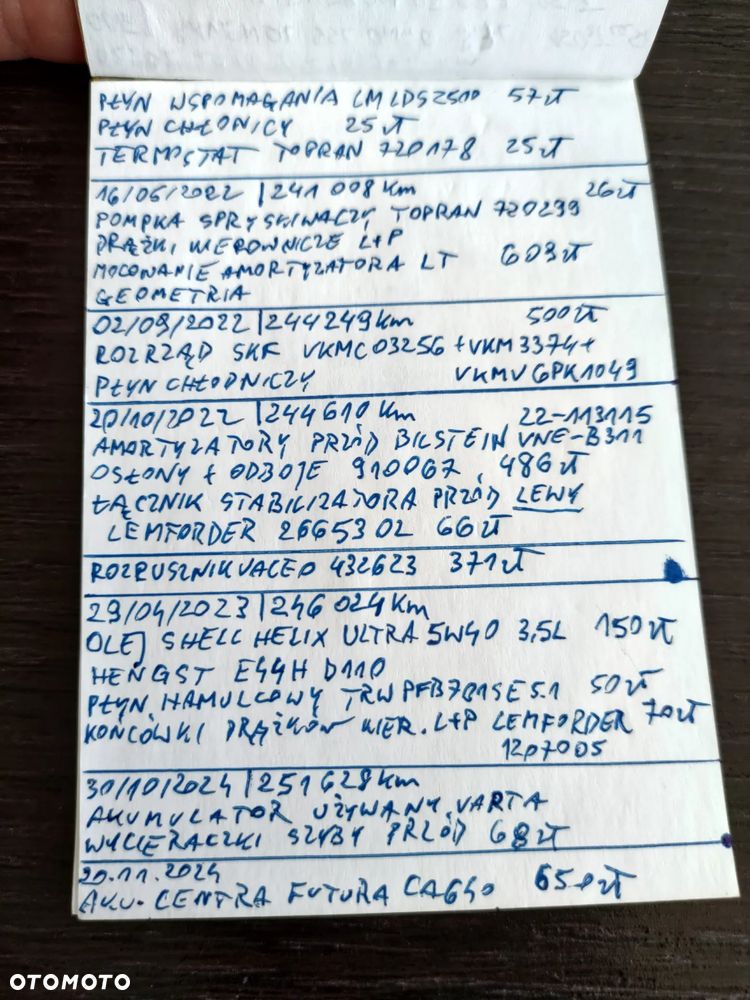 PŁYN WSPOMAGANIA LM LDS2510 57zł
PŁYN CHŁONICY 25zł
TERMOSTAT TOPRAN 720178 25zł
16/05/2022 | 241 008km 26zł
POMPKA SPRYSKIWACZY TOPRAN 720299
DRĄŻKI KIEROWNICZE L+P
MOCOWANIE AMORTYZATORA LT 609zł
GEOMETRIA
02/09/2022 | 244249km 500zł
ROZRZĄD SKF VKMC03256 + VKM3374+
PŁYN CHŁODNICZY VKMV6PK1049
20/10/2022 | 244610km 22-113115
AMORTYZATORY PRZÓD BILSTEIN VNE-B311
OSŁONY + ODBOJE 910067, 486zł
ŁĄCZNIK STABILIZATORA PRZÓD LEWY
LEMFORDER 26653 02 66zł
ROZRUSZNIK VALEO 432623 371zł
29/04/2023 | 246 024km
OLEJ SHELL HELIX ULTRA 5W40 3,5L 150zł
HENGST E44H D110
PŁYN HAMULCOWY TRW PFB701SE 5.1 50zł
KOŃCÓWKI DRĄŻKÓW KIER. L+P LEMFORDER 70zł
1207005
30/10/2024 | 251 628km
AKUMULATOR UŻYWANY VARTA
WYCIERACZKI SZYBY PRZÓD 68zł
20.11.2024
AKU. CENTRA FUTURA CA640 650zł
OTOMOTO